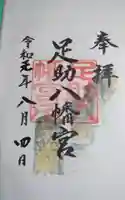 奉拝
足助八幡宮
令和元年八月四日